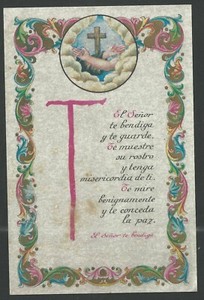 T
El Señor
te bendiga
y te guarde.
Te muestre
su rostro
y tenga
misericordia de ti.
Te mire
benignamente
y te conceda
la paz.
El Señor te bendiga.